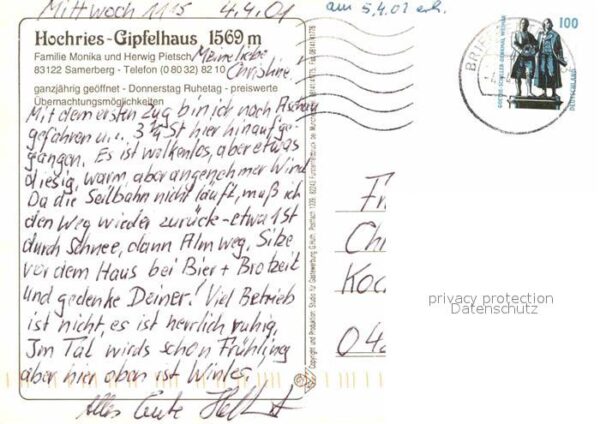 Mittwoch 11¹⁵ 4.4.01
am 5.4.01 erh.
Hochries-Gipfelhaus 1569 m
Familie Monika und Herwig Pietsch
83122 Samerberg - Telefon (0 80 32) 82 10
ganzjährig geöffnet - Donnerstag Ruhetag - preiswerte
Übernachtungsmöglichkeiten
Meine liebe
Christine!
Mit dem ersten Zug bin ich nach Aschau
gefahren u. 3 ¾ St hier hinaufge-
gangen. Es ist wolkenlos, aber etwas
diesig, warm, aber angenehmer Wind.
Da die Seilbahn nicht läuft, muß ich
den Weg wieder zurück - etwa 1 St
durch Schnee, dann Almweg. Sitze
vor dem Haus bei Bier + Brotzeit
und gedenke Deiner! Viel Betrieb
ist nicht, es ist herrlich ruhig.
Im Tal wirds schon Frühling
aber hier oben ist Winter.
Alles Gute
Copyright und Produktion: Studio für Gastwerbung GmbH, Postfach 1329, 82243 Fürstenfeldbruck
BRIE
100
DEUTSCHLAND
GOETHE-SCHILLER-DENKMAL WEIMAR
Fr
Ch
Koc
04
privacy protection
Datenschutz